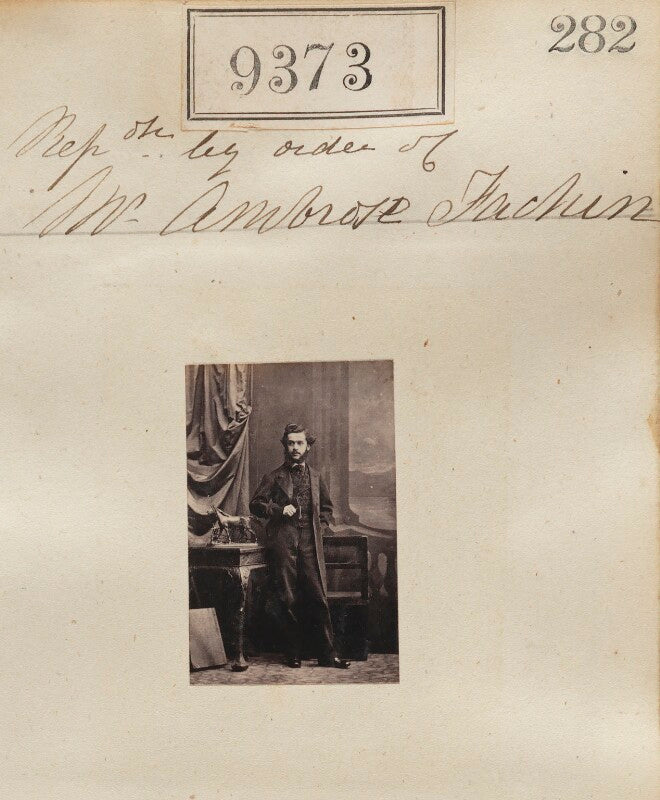 9373
282
Rep on by order of
Mr Ambrose Fachin